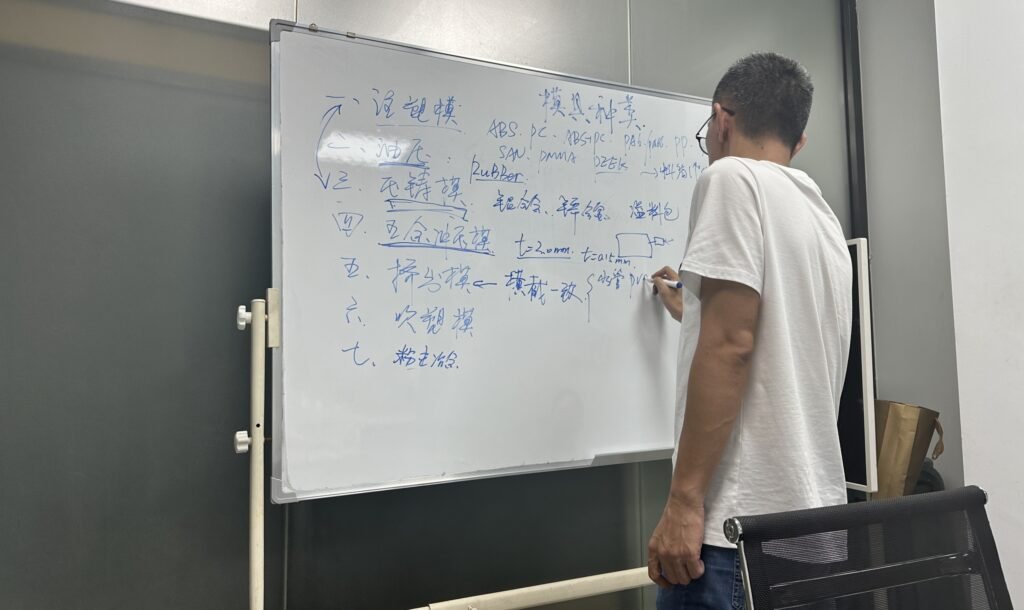 模具种类
一、注塑模
ABS. PC. ABS+PC. PA6. PP.
SAN. PMMA PEEK →
二、油压. RuBBer
三、压铸模 铝合金、锌合金. 溢料包
四、五金油压模 t=2.0mm. t=0.15mm
五、挤出模 ← 横截一致 { 水管 PV
六、吹塑模
七、粉末冶金.